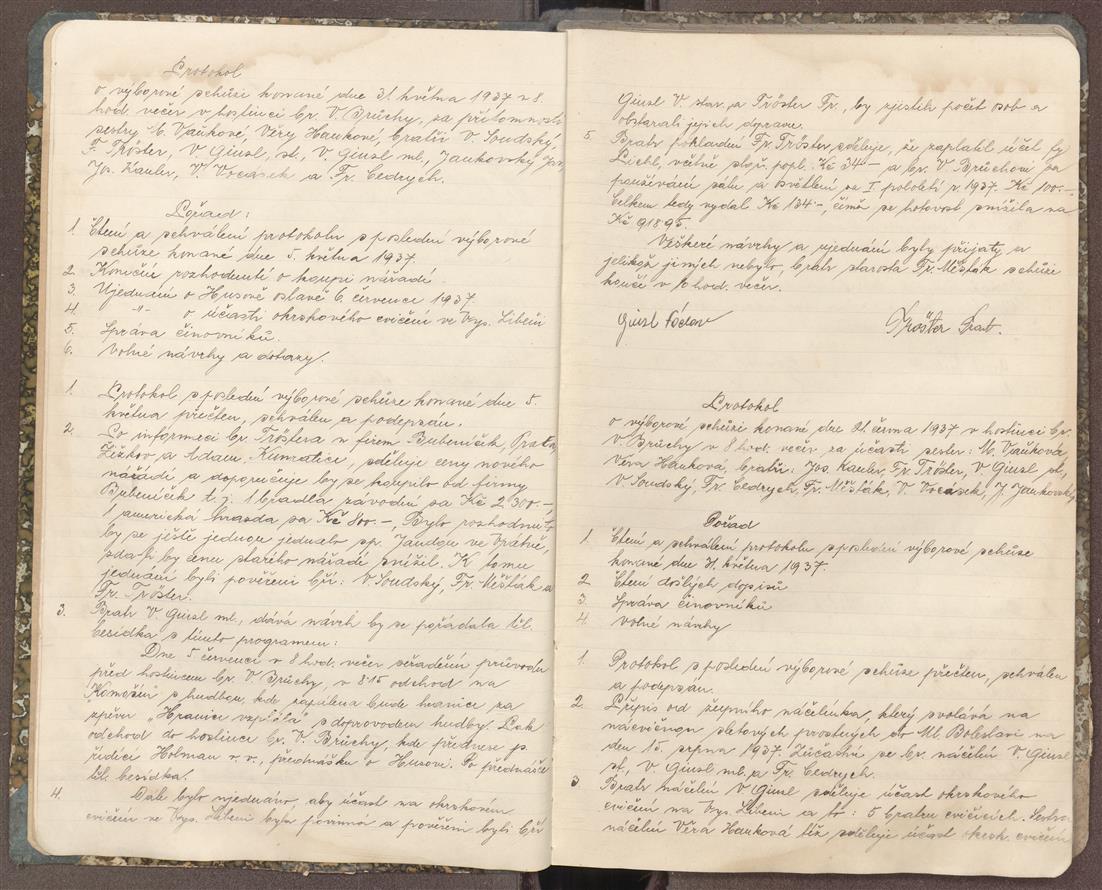 Protokol
o výborové schůzi konané dne 31. května 1937 v 8.
hod. večer v hostinci br. V. Brůchy, za přítomnosti
sestry M. Vaňkové, Věry Haukové, bratří V. Soudský,
F. Tröster, V. Giusl, st., V. Giusl ml., Jankovský Jos.,
Jos. Kauler, V. Vocásek a Fr. Cedrych.
Pořad:
1. Čtení a schválení protokolu s poslední výborové
schůze konané dne 5. května 1937.
2. Konečné rozhodnutí o koupi nářadí.
3. Ujednání o Husově oslavě 6. července 1937.
4. -"- o účasti okrskového cvičení ve Vys. Libeni
5. Správa činovníků.
6. Volné návrhy a dotazy.
1. Protokol s poslední výborové schůze konané dne 5.
května přečten, schválen a podepsán.
2. Po informaci br. Tröstera u firem Bubeníček, Praha
Žižkov a Adam, Kunratice, sděluje ceny nového
nářadí a doporučuje by se koupilo od firmy
Bubeníček t. j. 1 bradla závodní za Kč 2.300.-,
1 americká hrazda za Kč 800.-, Bylo rozhodnuto
by se ještě jednou jednalo sp. Jandou ve Vrátné,
zda-li by cenu starého nářadí snížil. K tomu
jednání byli pověřeni bří: V. Soudský, Fr. Měšťák a
Fr. Tröster.
3. Bratr V. Giusl ml., dává návrh by se pořádala těl.
besídka s tímto programem:
Dne 5 července v 8 hod. večer seřadění průvodu
před hostincem br. V. Brůchy, v 8.15 odchod na
"Komošín" s hudbou, kde zapálena bude hranice za
zpěvu "Hranice vzplála" s doprovodem hudby. Pak
odchod do hostince br. V. Brůchy, kde přednese p.
řídící Holman v. v., přednášku o Husovi. Po přednášce
těl. besídka.
4. Dále bylo ujednáno, aby účast na okrskovém
cvičení ve Vys. Libeni byla povinná a pověřeni byli bří
Giusl V. star. a Tröster Fr., by zjistili počet osob a
obstarali jejich dopravu.
5. Bratr pokladní Fr. Tröster sděluje, že zaplatil účet fy
Lichl, včetně slož. popl. Kč 34.- a br. V. Brůchovi za
používání sálu a světlení za I. pololetí r. 1937. Kč 100.-.
Celkem tedy vydal Kč 134.-, čímž se hotovost snížila na
Kč 918.95.
Veškeré návrhy a ujednání byly přijaty a
jelikož jiných nebylo, bratr starosta Fr. Měšťák schůzi
končí v 10 hod. večer.
Giusl Václav Tröster Frant.
Protokol
o výborové schůzi konané dne 21. června 1937 v hostinci br.
V. Brůchy v 8 hod. večer za účasti sester: M. Vaňková,
Věra Hauková, bratří: Jos. Kauler, Fr. Tröster, V. Giusl st.,
V. Soudský, Fr. Cedrych, Fr. Měšťák, V. Vocásek, J. Jankovský
Pořad
1. Čtení a schválení protokolu s poslední výborové schůze
konané dne 31. května 1937.
2. Čtení došlých dopisů
3. Správa činovníků
4. Volné návrhy
1. Protokol s poslední výborové schůze přečten, schválen
a podepsán.
2. Přípis od župního náčelníka, který svolává na
nácvičnou sletových prostných do Ml. Boleslavi na
den 15. srpna 1937. Zúčastní se br. náčelní V. Giusl
st., V. Giusl ml. a Fr. Cedrych.
3. Bratr náčelní V. Giusl sděluje účast okrskového
cvičení na Vys. Libeni a to: 5 bratrů cvičících. Sestra
náčelní Věra Hauková též sděluje účast okrsk. cvičení